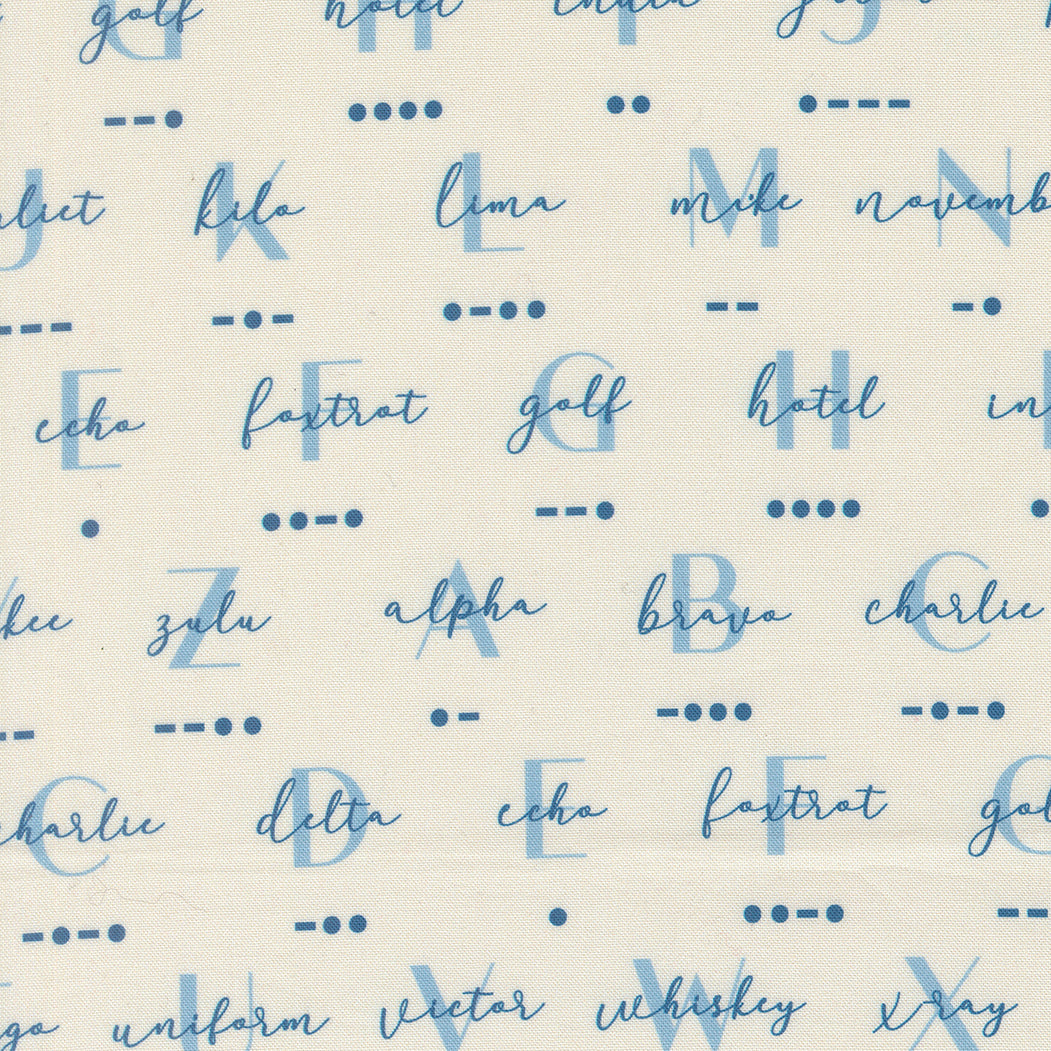 golf hotel india
G H I J
--• •••• •• •---
kilo lima mike novemb
J K L M N
--- -•- •-•• -- -•
echo foxtrot golf hotel in
E F G H
• ••-• --• •••• •
kee zulu alpha bravo charlie
Z A B C
-- --•• •- -••• -•-•
charlie delta echo foxtrot gol
C D E F G
-•-• -•• • ••-• --
go uniform victor whiskey x-ray
U V W X